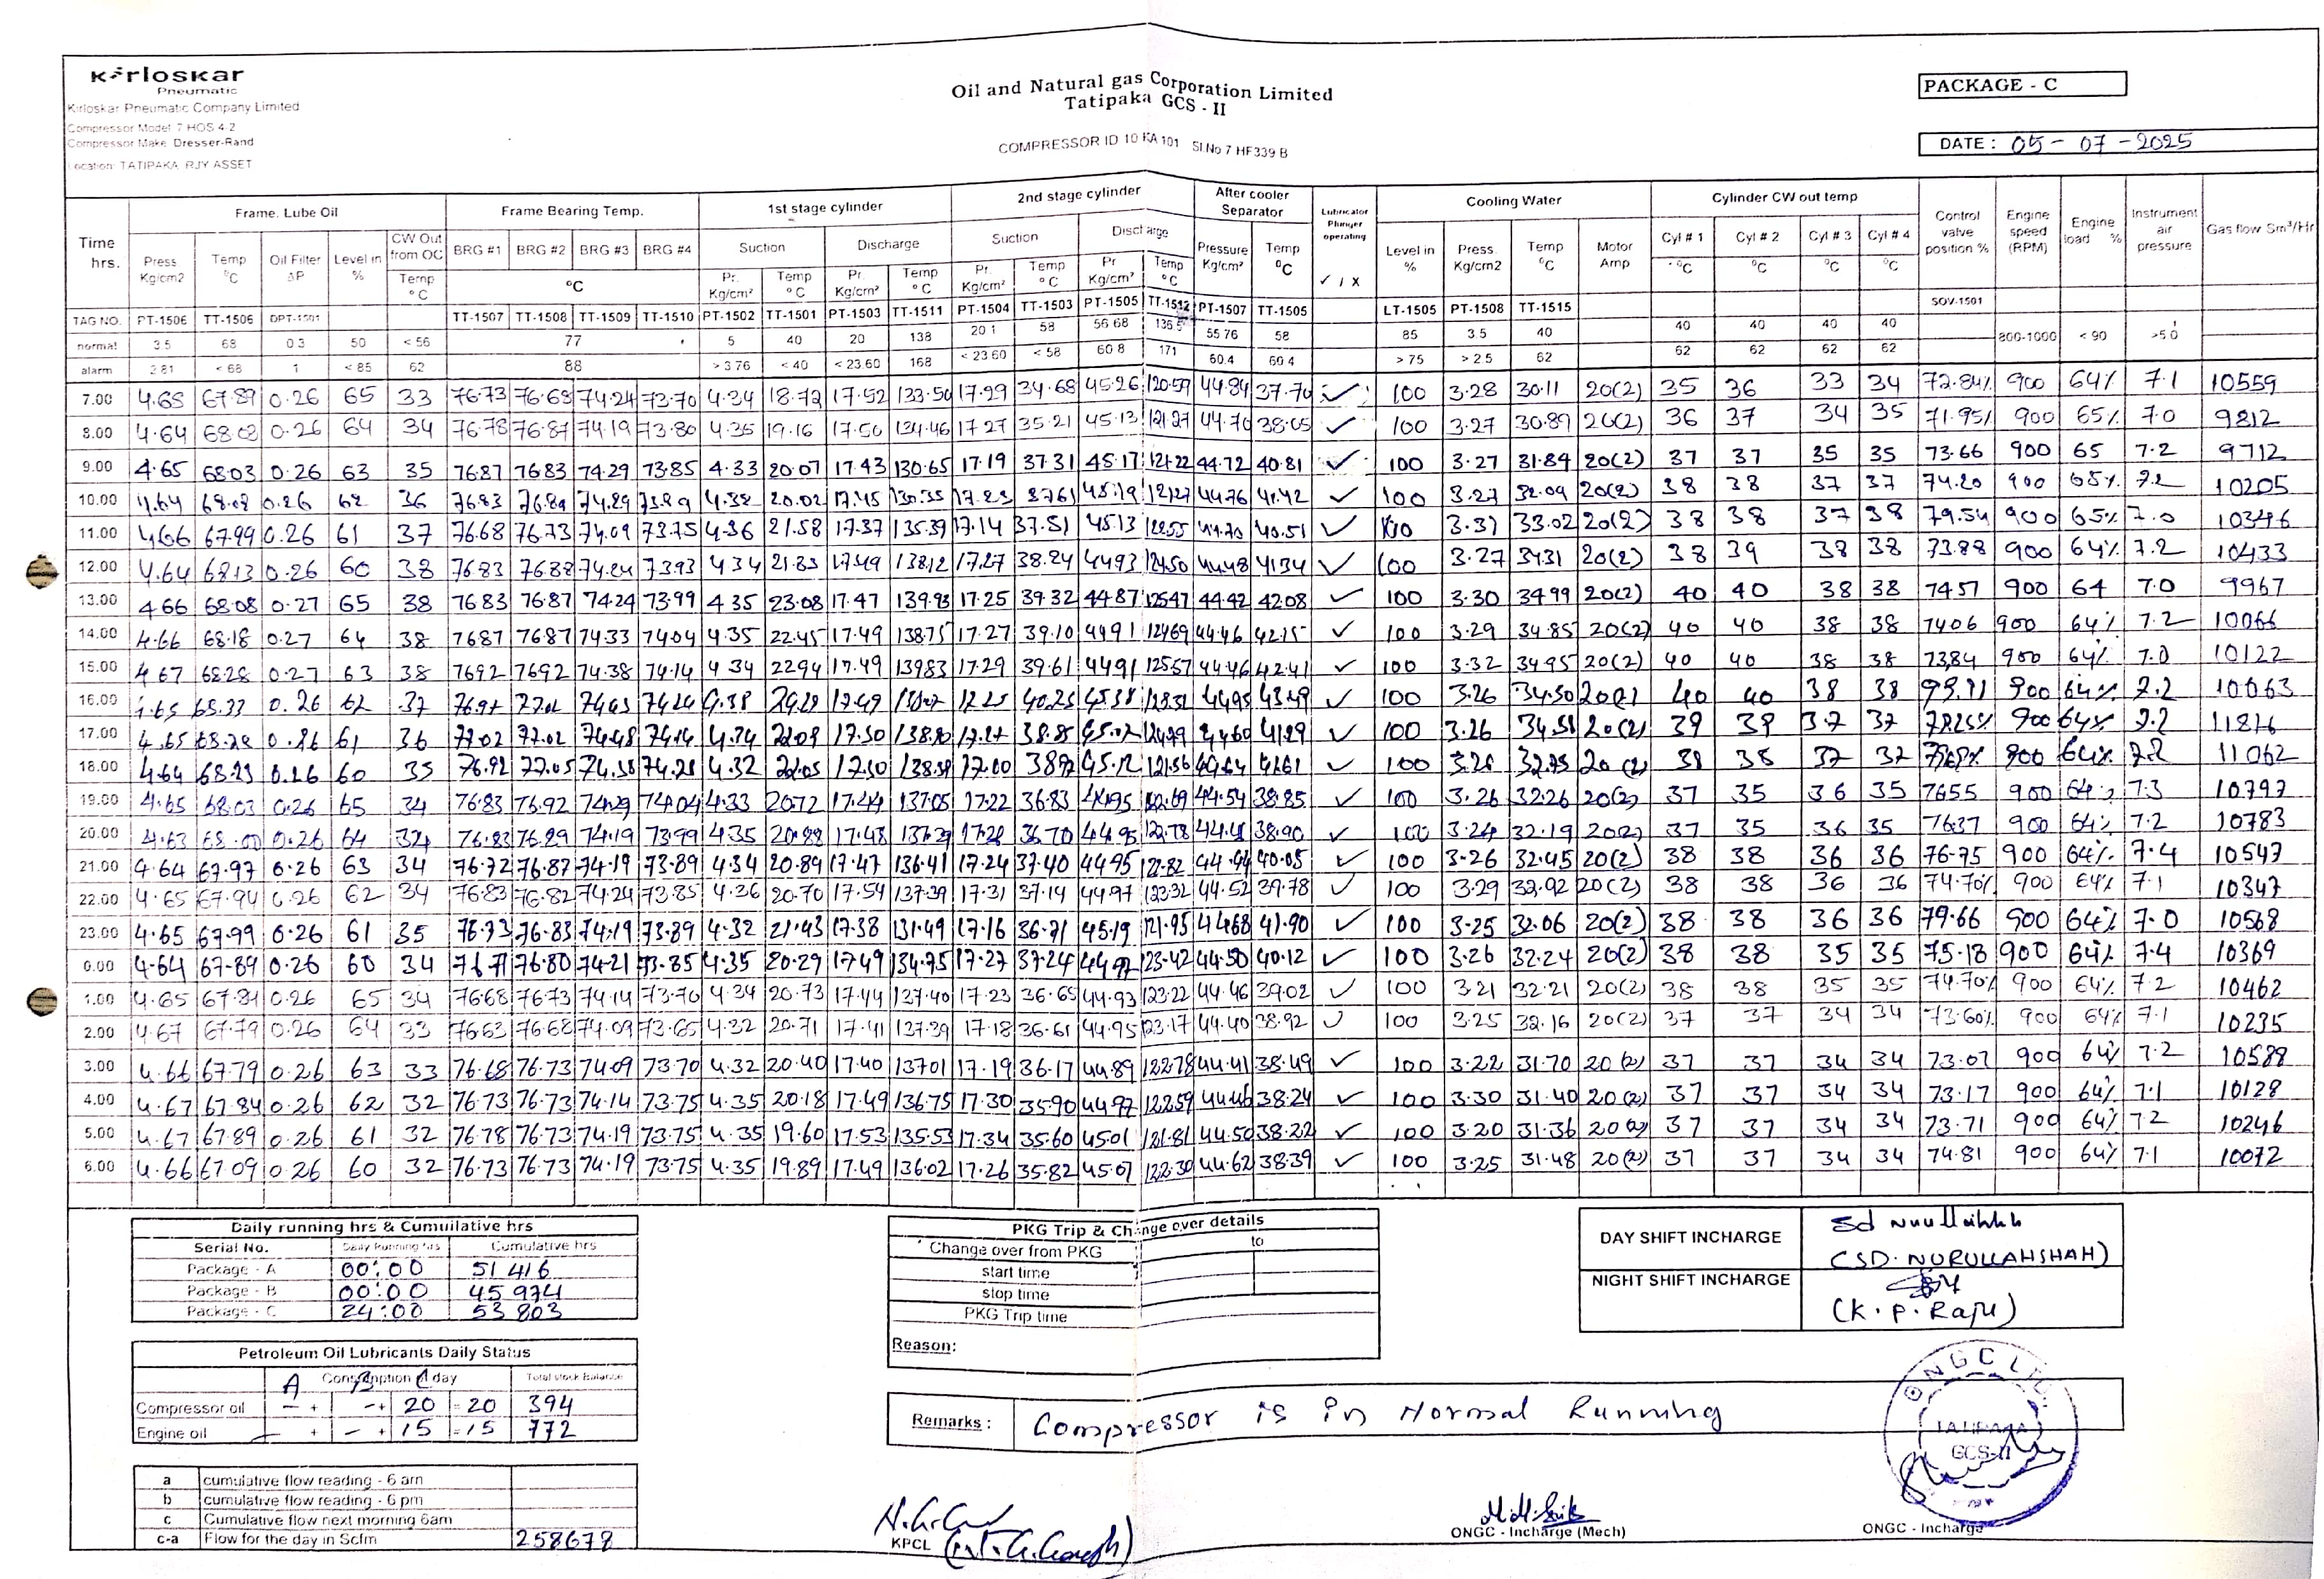 Kirloskar
Pneumatic
Kirloskar Pneumatic Company Limited
Compressor Model 7 HOS 4-2
Compressor Make Dresser-Rand
Location TATIPAKA, RJY ASSET
Oil and Natural gas Corporation Limited
Tatipaka GCS - II
COMPRESSOR ID 10 KA 101 Sl.No 7 HF339 B
PACKAGE - C
DATE : 05-07-2025
Time hrs. Frame. Lube Oil Frame Bearing Temp. 1st stage cylinder 2nd stage cylinder After cooler Separator Lubricator Plunger operating Cooling Water Cylinder CW out temp Control valve position % Engine speed (RPM) Engine load % Instrument air pressure Gas flow Sm³/Hr
Press Kg/cm2 Temp °C Oil Filter ΔP Level in % CW Out from OC Temp °C BRG #1 BRG #2 BRG #3 BRG #4 °C Suction Discharge Suction Discharge Pressure Kg/cm² Temp °C ✓ / X Level in % Press Kg/cm2 Temp °C Motor Amp Cyl # 1 °C Cyl # 2 °C Cyl # 3 °C Cyl # 4 °C
Pr. Kg/cm² Temp °C Pr. Kg/cm² Temp °C Pr. Kg/cm² Temp °C Pr Kg/cm² Temp °C
TAG NO. PT-1506 TT-1506 DPT-1501 TT-1507 TT-1508 TT-1509 TT-1510 PT-1502 TT-1501 PT-1503 TT-1511 PT-1504 TT-1503 PT-1505 TT-1512 PT-1507 TT-1505 LT-1505 PT-1508 TT-1515 SOV-1501
normal 3.5 68 0.3 50 < 56 77 5 40 20 138 20.1 58 56.68 136.5 55.76 58 85 3.5 40 40 40 40 40 800-1000 < 90 >5.0
alarm 2.81 < 68 1 < 85 62 88 > 3.76 < 40 < 23.60 168 < 23.60 < 58 60.8 171 60.4 60.4 > 75 > 2.5 62 62 62 62 62
7.00 4.65 67.89 0.26 65 33 76.73 76.68 74.24 73.70 4.34 18.72 17.52 133.50 17.29 34.68 45.26 120.59 44.84 37.70 ✓ 100 3.28 30.11 20(2) 35 36 33 34 72.84% 900 64% 7.1 10559
8.00 4.64 68.08 0.26 64 34 76.78 76.87 74.19 73.80 4.35 19.16 17.50 134.46 17.27 35.21 45.13 121.27 44.70 38.05 ✓ 100 3.27 30.89 20(2) 36 37 34 35 71.95% 900 65% 7.0 9812
9.00 4.65 68.03 0.26 63 35 76.87 76.83 74.29 73.85 4.33 20.07 17.43 130.65 17.19 37.31 45.17 121.22 44.72 40.81 ✓ 100 3.27 31.84 20(2) 37 37 35 35 73.66 900 65 7.2 9712
10.00 4.64 68.08 0.26 62 36 76.83 76.89 74.29 73.89 4.32 20.02 17.45 130.35 17.23 37.61 45.19 121.27 44.76 41.42 ✓ 100 3.27 32.09 20(2) 38 38 37 37 74.20 900 65% 7.2 10205
11.00 4.66 67.99 0.26 61 37 76.68 76.73 74.09 73.75 4.36 21.58 17.37 135.39 17.14 37.51 45.13 122.55 44.70 40.51 ✓ 100 3.31 33.02 20(2) 38 38 37 38 79.54 900 65% 7.0 10346
12.00 4.64 68.13 0.26 60 38 76.83 76.88 74.24 73.93 4.34 21.83 17.49 138.12 17.27 38.24 44.93 124.50 44.48 41.34 ✓ 100 3.27 34.31 20(2) 38 39 38 38 73.88 900 64% 7.2 10433
13.00 4.66 68.08 0.27 65 38 76.83 76.87 74.24 73.99 4.35 23.08 17.47 139.93 17.25 39.32 44.87 125.47 44.42 42.08 ✓ 100 3.30 34.99 20(2) 40 40 38 38 74.57 900 64 7.0 9967
14.00 4.66 68.18 0.27 64 38 76.87 76.87 74.33 74.04 4.35 22.45 17.49 138.75 17.27 39.10 44.91 124.69 44.46 42.15 ✓ 100 3.29 34.85 20(2) 40 40 38 38 74.06 900 64% 7.2 10066
15.00 4.67 68.28 0.27 63 38 76.92 76.92 74.38 74.14 4.34 22.94 17.49 139.83 17.29 39.61 44.91 125.57 44.46 42.41 ✓ 100 3.32 34.95 20(2) 40 40 38 38 73.84 900 64% 7.0 10122
16.00 4.65 68.33 0.26 62 37 ✓ 100 3.26 34.50 40 40 38 38 900 64% 7.2 10063
17.00 4.65 0.26 61 36 77.02 77.02 74.48 74.14 4.34 17.50 38.85 45.02 44.60 41.29 ✓ 100 3.26 34.51 20(2) 39 39 37 37 900 64% 7.2 11816
18.00 4.64 68.23 0.26 60 35 76.92 77.05 74.38 74.28 4.32 22.05 17.50 138.39 121.56 ✓ 100 3.28 32.75 20(2) 38 38 37 37 900 64% 7.2 11062
19.00 4.65 68.03 0.26 65 34 76.83 76.92 74.29 74.04 4.33 20.72 17.44 137.05 17.22 36.83 44.95 122.69 44.54 38.85 ✓ 100 3.26 32.26 20(2) 37 35 36 35 76.55 900 64% 7.3 10797
20.00 4.63 68.00 0.26 64 34 76.83 76.89 74.19 73.99 4.35 20.88 17.48 137.29 17.28 36.70 44.95 122.78 44.41 38.90 ✓ 100 3.24 32.19 20(2) 37 35 36 35 76.37 900 64% 7.2 10783
21.00 4.64 67.97 0.26 63 34 76.72 76.87 74.19 73.89 4.34 20.89 17.47 136.41 17.24 37.40 44.95 122.82 44.44 40.05 ✓ 100 3.26 32.45 20(2) 38 38 36 36 76.75 900 64% 7.4 10547
22.00 4.65 67.94 0.26 62 34 76.83 76.82 74.24 73.85 4.36 20.70 17.54 137.39 17.31 37.14 44.97 123.32 44.52 39.78 ✓ 100 3.29 32.92 20(2) 38 38 36 36 74.70% 900 64% 7.1 10347
23.00 4.65 67.99 0.26 61 35 76.73 76.83 74.19 73.89 4.32 21.43 17.38 131.49 17.16 36.71 45.19 121.95 44.68 41.90 ✓ 100 3.25 32.06 20(2) 38 38 36 36 79.66 900 64% 7.0 10568
0.00 4.64 67.89 0.26 60 34 76.71 76.80 74.21 73.85 4.35 20.29 17.49 134.75 17.27 37.24 44.97 123.42 44.50 40.12 ✓ 100 3.26 32.24 20(2) 38 38 35 35 75.18 900 64% 7.4 10369
1.00 4.65 67.81 0.26 65 34 76.68 76.73 74.14 73.70 4.34 20.73 17.44 137.40 17.23 36.65 44.93 123.22 44.46 39.02 ✓ 100 3.21 32.21 20(2) 38 38 35 35 74.70% 900 64% 7.2 10462
2.00 4.67 67.79 0.26 64 33 76.63 76.68 74.09 73.65 4.32 20.71 17.41 137.39 17.18 36.61 44.95 123.17 44.40 38.92 ✓ 100 3.25 32.16 20(2) 37 37 34 34 73.60% 900 64% 7.1 10235
3.00 4.66 67.79 0.26 63 33 76.68 76.73 74.09 73.70 4.32 20.40 17.40 137.01 17.19 36.17 44.89 122.78 44.41 38.49 ✓ 100 3.22 31.70 20(2) 37 37 34 34 73.07 900 64% 7.2 10589
4.00 4.67 67.84 0.26 62 32 76.73 76.73 74.14 73.75 4.35 20.18 17.49 136.75 17.30 35.90 44.97 122.59 44.46 38.24 ✓ 100 3.30 31.40 20(2) 37 37 34 34 73.17 900 64% 7.1 10128
5.00 4.67 67.89 0.26 61 32 76.78 76.73 74.19 73.75 4.35 19.60 17.53 135.53 17.34 35.60 45.01 121.81 44.50 38.22 ✓ 100 3.20 31.36 20(2) 37 37 34 34 73.71 900 64% 7.2 10246
6.00 4.66 67.09 0.26 60 32 76.73 76.73 74.19 73.75 4.35 19.89 17.49 136.02 17.26 35.82 45.07 122.30 44.62 38.39 ✓ 100 3.25 31.48 20(2) 37 37 34 34 74.81 900 64% 7.1 10072
Daily running hrs & Cumuilative hrs
Serial No. Daily Running hrs Cumulative hrs
Package - A 00:00 51416
Package - B 00:00 45974
Package - C 24:00 53803
Petroleum Oil Lubricants Daily Status
A B C Consumption / day Total stock Balance
Compressor oil - + - + 20 = 20 394
Engine oil - + - + 15 = 15 772
a cumulative flow reading - 6 am
b cumulative flow reading - 6 pm
c Cumulative flow next morning 6am
c-a Flow for the day in Scfm 258678
PKG Trip & Change over details
Change over from PKG to
start time
stop time
PKG Trip time
Reason:
Remarks : Compressor is in Normal Running
DAY SHIFT INCHARGE
(SD. NURULLAHSHAH)
NIGHT SHIFT INCHARGE
(K. P. Raju)
KPCL
ONGC - Incharge (Mech)
ONGC LTD.
TATIPAKA
GCS-II
ONGC - Incharge